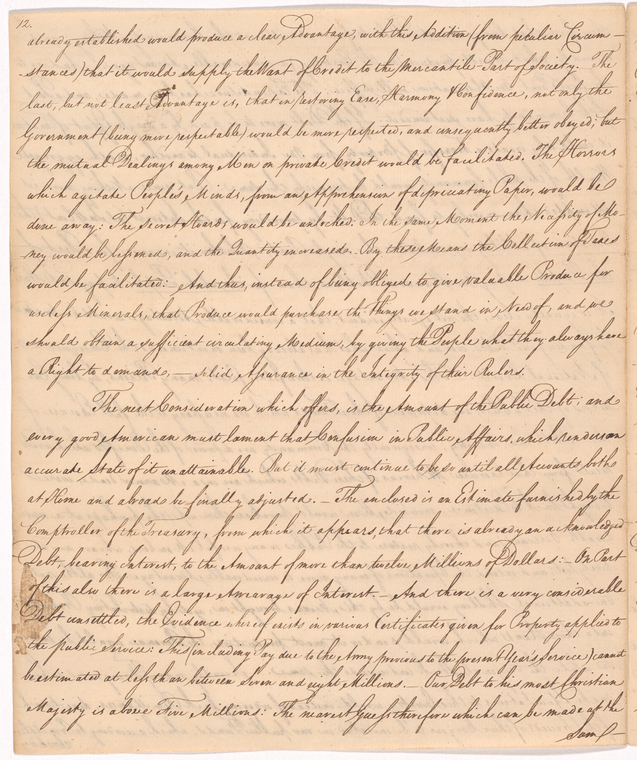 12.
already established would produce a clear Advantage, with this Addition (from peculiar Circum-
stances) that it would supply the Want of Credit to the Mercantile Part of Society. The
last, but not least Advantage is, that in restoring Ease, Harmony & Confidence, not only the
Government (being more respectable) would be more respected, and consequently better obeyed, but
the mutual Dealings among Men on private Credit would be facilitated. The Horrors
which agitate People's Minds, from an Apprehension of depreciating Paper, would be
done away: The Secret Hoards would be unlocked. In the same Moment the Necessity of Mo-
ney would be lessened, and the Quantity increased. By these Means the Collection of Taxes
would be facilitated: And thus, instead of being obliged to give valuable Produce for
useless Minerals, that Produce would purchase the things we stand in Need of, and we
should obtain a sufficient circulating Medium, by giving the People what they always have
a Right to demand, — solid Assurance in the Integrity of their Rulers.
The next Consideration which offers, is the Amount of the Public Debt; and
every good American must lament that Confusion in Public Affairs, which renders an
accurate State of it unattainable. But it must continue to be so until all Accounts, both
at Home and abroad be finally adjusted. — The enclosed is an Estimate furnished by the
Comptroller of the Treasury, from which it appears, that there is already an acknowledged
Debt, bearing Interest, to the Amount of more than twelve Millions of Dollars: — On Part
of this also there is a large Arrearage of Interest. — And there is a very considerable
Debt unsettled, the Evidence whereof exists in various Certificates given for Property applied to
the public Service: This (including Pay due to the Army previous to the present Year's Service) cannot
be estimated at less than between Seven and eight Millions. — Our Debt to his most Christian
Majesty is above Five Millions: The nearest Guess therefore which can be made at the
Sum